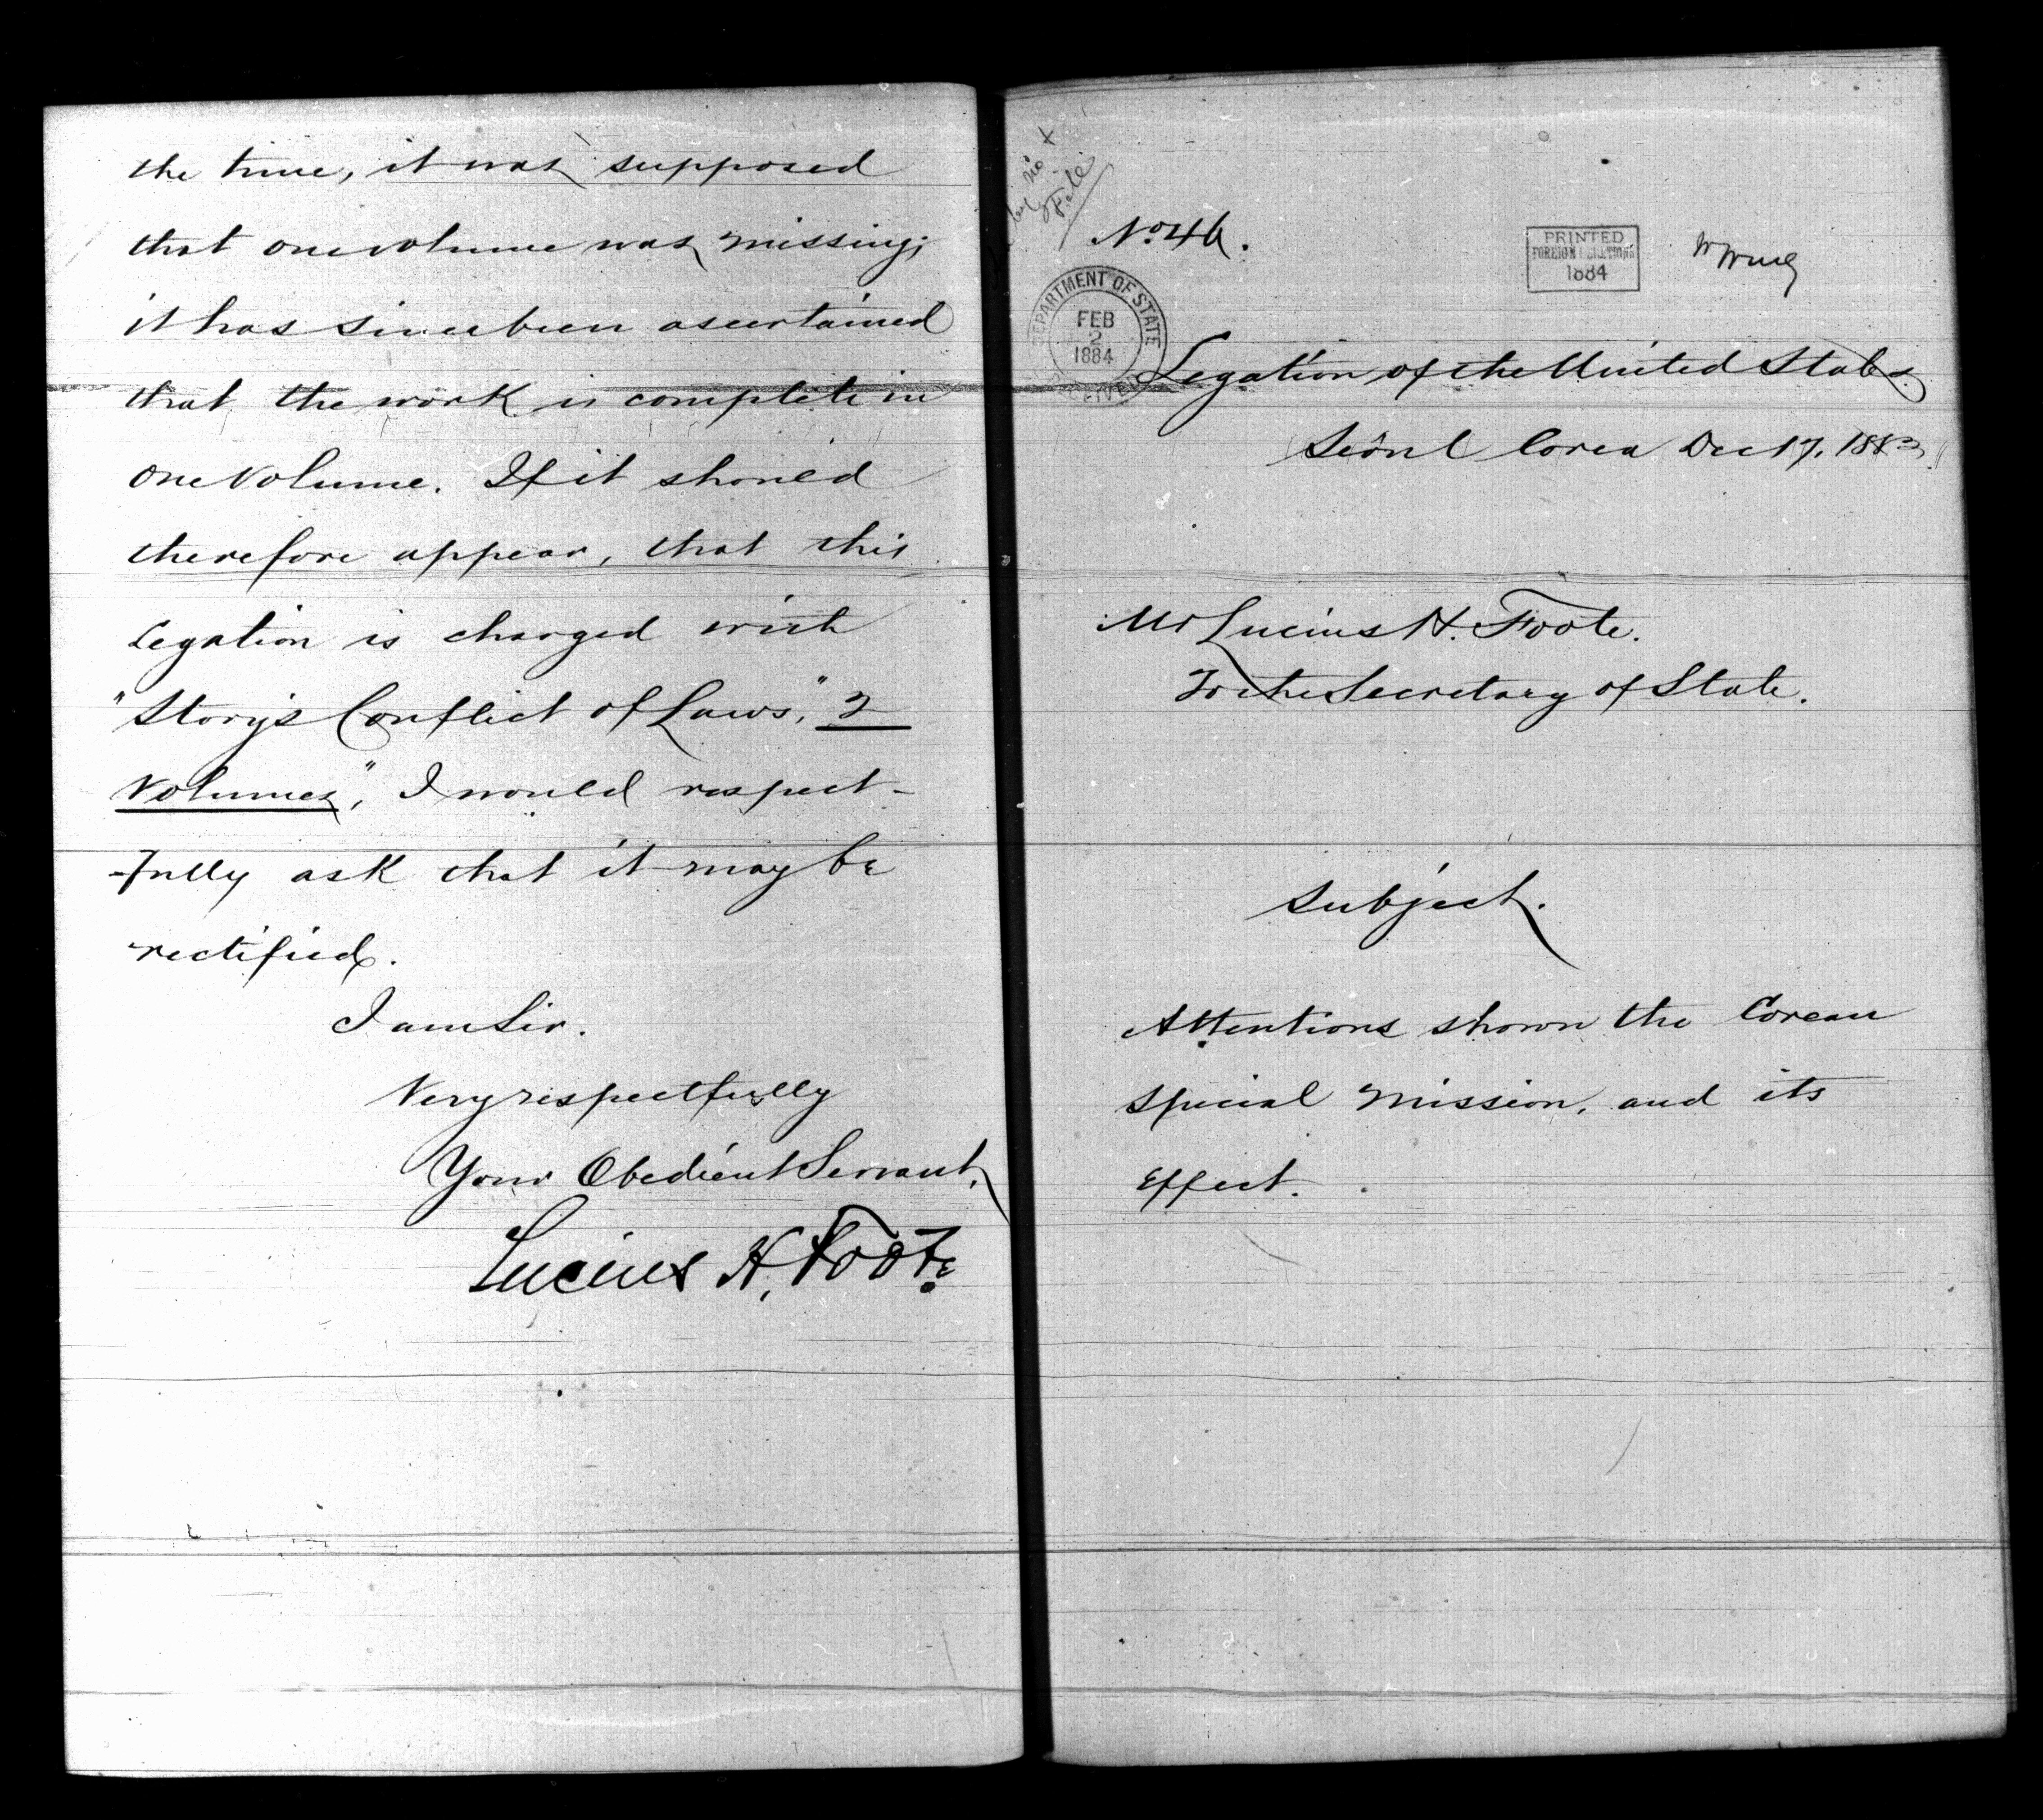 the time, it was supposed
that one volume was missing;
it has since been ascertained
that the work is complete in
one Volume. If it should
therefore appear, that this
Legation is charged with
"Story's Conflict of Laws," 2
Volumes", I would respect-
-fully ask that it may be
rectified.
I am Sir.
Very respectfully
Your Obedient Servant,
Lucius H. Foote.
File
No 46.
PRINTED
FOREIGN RELATIONS
1884
DEPARTMENT OF STATE
FEB
2
1884
RECEIVED
Legation of the United States.
Seoul Corea Dec 17, 1883
Mr Lucius H. Foote.
To the Secretary of State.
Subject.
Attentions shown the Corean
Special Mission, and its
Effect.